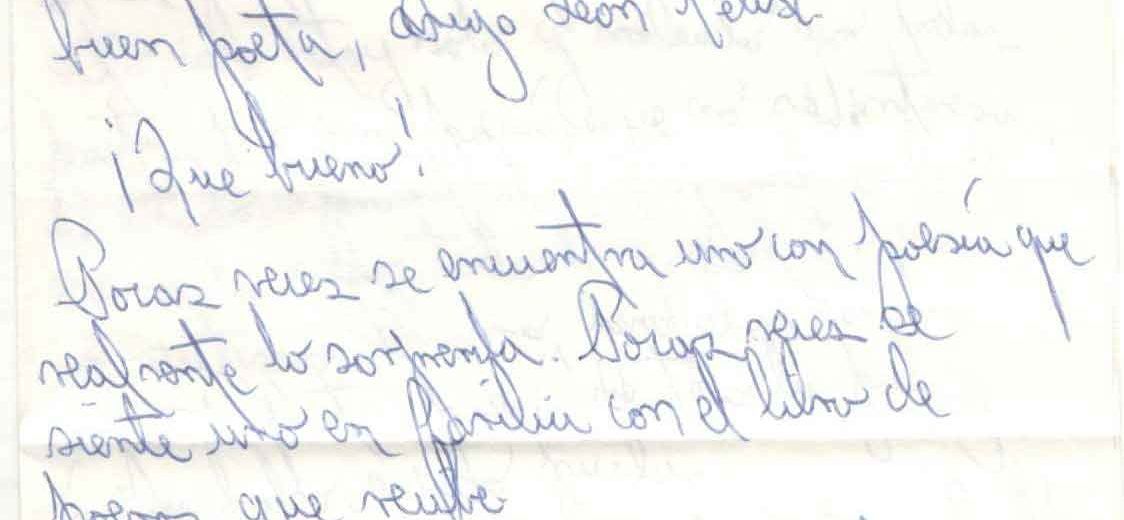 buen poeta, amigo León Felipe.
¡Que bueno!
Pocas veces se encuentra uno con poesía que
realmente lo sorprenda. Pocas veces se
siente uno en familia con el libro de
poemas que recibe